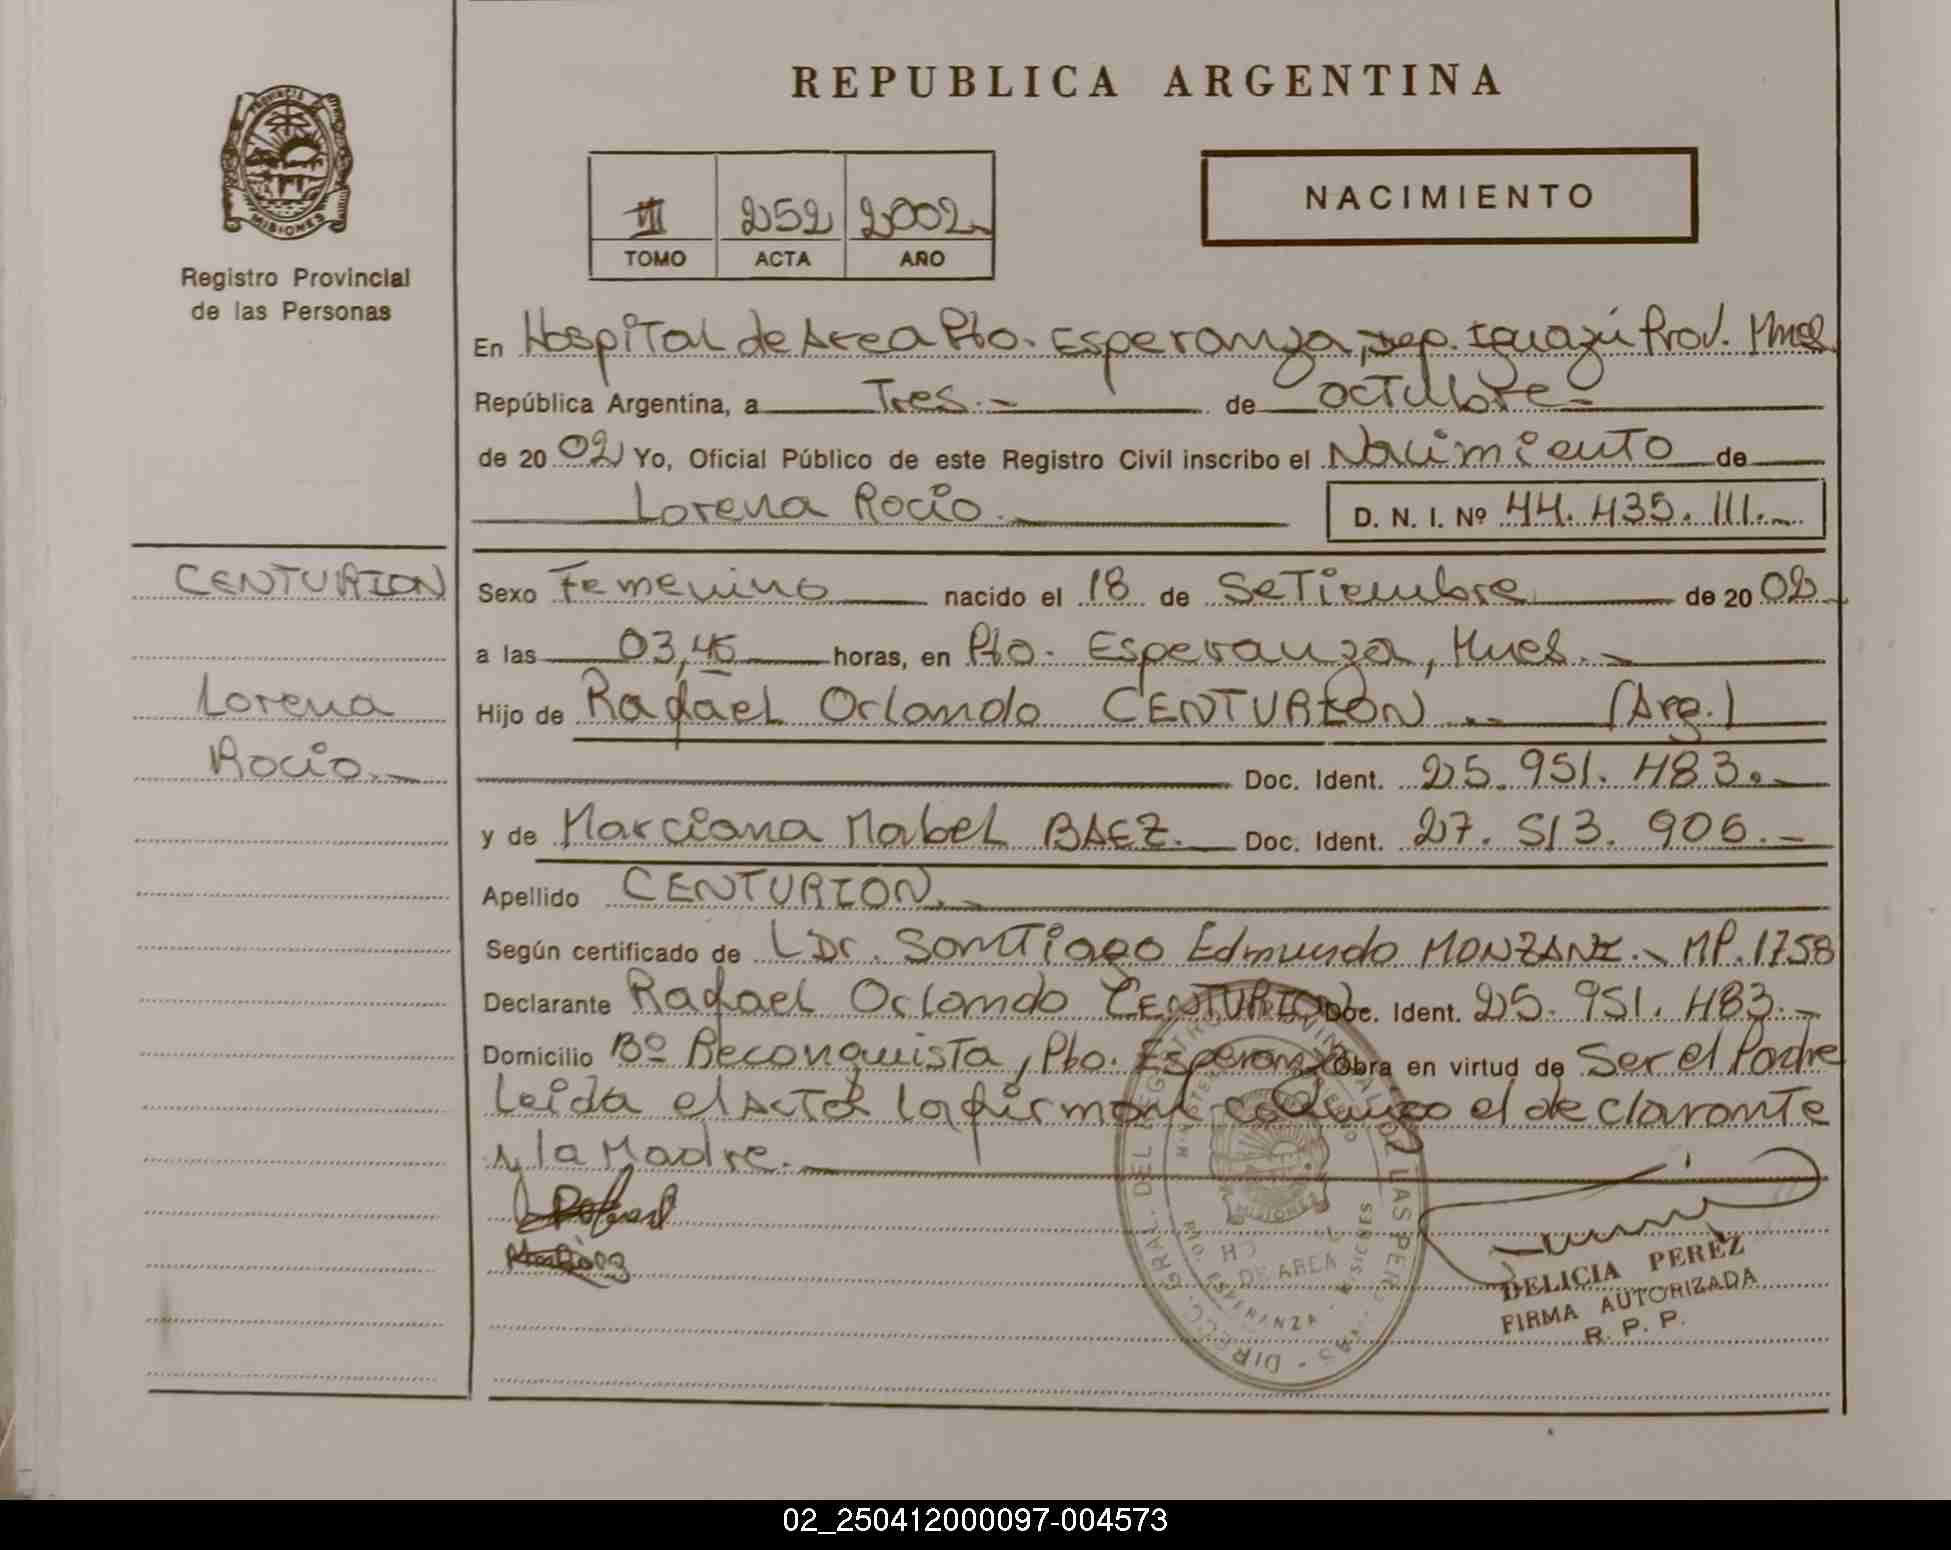 REPUBLICA ARGENTINA
PROVINCIA
MISIONES
Registro Provincial
de las Personas
252 2002
TOMO ACTA AÑO
NACIMIENTO
En Hospital de Area Pto. Esperanza, Dep. Iguazú Prov. Mnes
República Argentina, a Tres.- de octubre-
de 2002 Yo, Oficial Público de este Registro Civil inscribo el Nacimiento de
Lorena Rocio.- D. N. I. Nº 44.435.111.-
CENTURION
Lorena
Rocio.-
Sexo Femenino nacido el 18 de Setiembre de 2002
a las 03,45 horas, en Pto. Esperanza, Mnes.-
Hijo de Rafael Orlando CENTURION.- (Arg.)
Doc. Ident. 25.951.483.-
y de Marciana Mabel BAEZ.- Doc. Ident. 27.513.906.-
Apellido CENTURION.-
Según certificado de Dr. Santiago Edmundo MONZANI.- MP.1758
Declarante Rafael Orlando CENTURION Doc. Ident. 25.951.483.-
Domicilio Bº Reconquista, Pto. Esperanza Obra en virtud de Ser el Padre
Leida el Acta la firman conmigo el declarante
y la Madre.
DIRECC. GRAL. DEL REGISTRO PROVINCIAL DE LAS PERSONAS
DE AREA
ESPERANZA - MISIONES
DELICIA PEREZ
FIRMA AUTORIZADA
R. P. P.
02_250412000097-004573